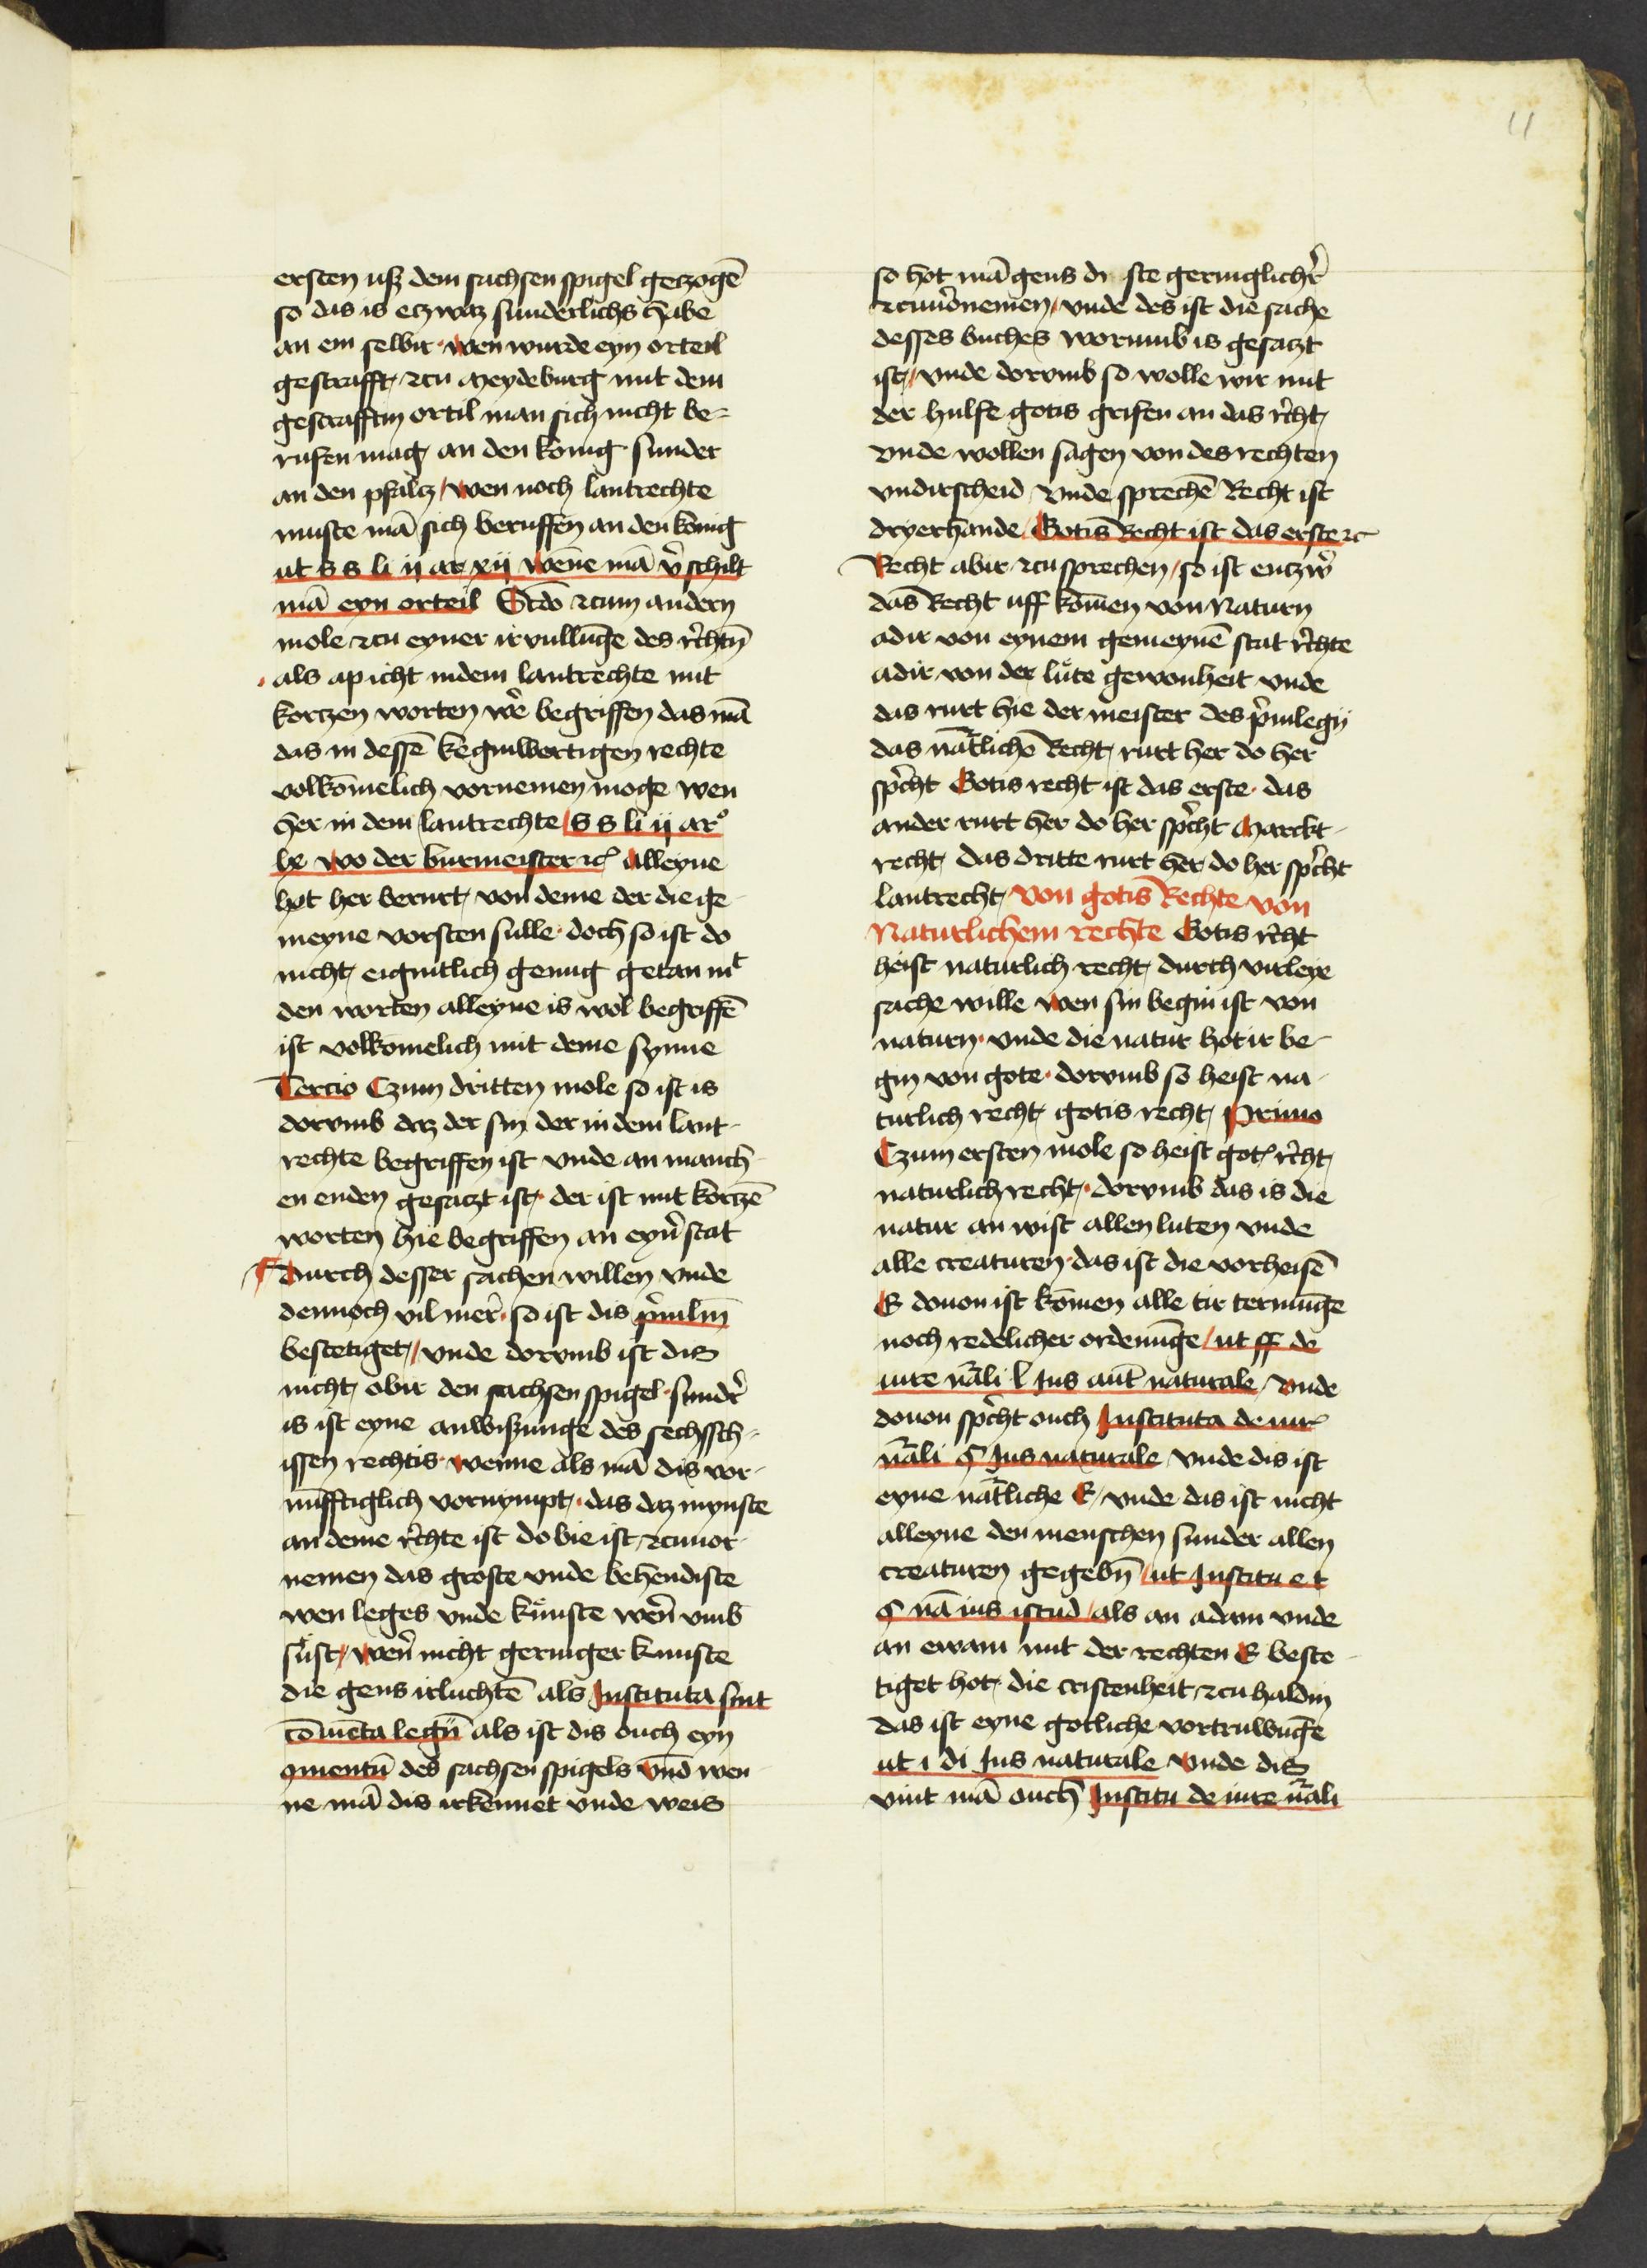 11
ersten uß dem sachsen spigel getzogē
so das is etzwaz sunderlichs habe
an em selbir · wen wurde eyn orteil
gestrafft, zcu Meydeburg mit dem
gestrafftin ortil man sich nicht be-
rufen mag, an den konig · sunder
an den pfaltz / wen noch lantrechte
muste mā sich beruffen an den konig
ut s s li ij ar xij wēne mā v̓schilt
mā eyn orteil Scdo zcum andern
mole zcu eyner irvullūge des rechtn̄
als ap icht in dem lantrechte mit
kortzen worten wer̓ begriffen das mā
das in dessē keginwortigen rechte
volkōmelich vornemen moge wen
her in dem lantrechte / s s li ij ar°
lx wo der burmeister etc̓ Alleyne
hot her berurt, von deme der die ge-
meyne vorsten sulle · doch so ist do
nicht, eigintlich genug getan mͭ
den worten alleyne is wol begriffē
ist volkomelich mit deme synne
Tercio Czum dritten mole so ist is
dorvmb daz der sin der in dem lant-
rechte begriffen ist vnde an manch-
en enden gesatzt ist, · der ist mit kortzē
worten hie begriffen an eyn̓ stat
Durch desser sachen willen vnde
dennoch vil mer̓ · so ist dis p̓uilm̄
bestetiget, / vnde dorvmb ist dis
nicht, obir den sachsen spigel · sundr̓
is ist eyne anwißunge des sechssch-
issen rechtis · wenne als mā dis vor-
nūfftiglich vornympt, · das daz mynste
an deme rechte ist do bie ist zcuuor-
nemen das groste vnde behendiste
wen leges vnde kunste wern̓ vmb
sust, / wern̓ nicht geringer kunste
die gens irluchtē als Instituta sint
cōmēta legū als ist dis ouch eyn
ꝯmentū des sachsen spigels vnd wen-
ne mā dis irkennet vnde weis
so hot mā gens di ste geringlichr̓
zcuuor̓nemen, vnde des ist die sache
desses buches worumb is gesatzt
ist, / vnde dorvmb so wolle wir mit
der hulfe gotis grifen an das recht,
vnde wollen sagen von des rechten
vndirscheid vnde sprechē Recht ist
dryerhande / Gotis Recht ist das erste etc
Recht abir zcu sprechen / so ist entzwr̓
das Recht uff komen von Naturn
adir von eynem gemeynē stat rechte
adir von der lute gewonheit vnde
das rurt hie der meister des p̓uilegij
das nāt̓lichē Recht, rurt her do her
sp̓cht Gotis recht ist das erste · das
ander rurt her do her sp̓cht Marckt-
recht, das dritte rurt her do her sp̓cht
lantrecht, von gotis Rechte von
Naturlichem rechte Gotis recht
heist naturlich recht, durch virleye
sache wille wen sin begin ist von
naturn · vnde die natur hot ir be-
gin von gote · dorvmb so heist na-
turlich recht, gotis recht, Primo
Czum ersten mole so heist got̓ recht,
naturlich recht, · dorvmb das is die
natur an wist allen luten vnde
alle creaturen · das ist die vorheisē
E douon ist kōmen alle tir termūge
noch redelicher ordenūge / ut ff de
iure nāli l Ius aūt naturale / Vnde
douon sp̓cht ouch Instituta de iur̓
nāli § Ius naturale vnde dis ist
eyne nāt̓liche E / vnde das ist nicht
alleyne den menschen sunder allen
creaturen gegebn̄ / ut Institu e t
§ nā ius istud / als an adam vnde
an ewam mit der rechten E beste-
tiget hot, die cristenheit, zcu haldin
das ist eyne gotliche vortruwūge
ut i di Ius naturale Vnde dis
vint mā ouch Institu de iure nāli